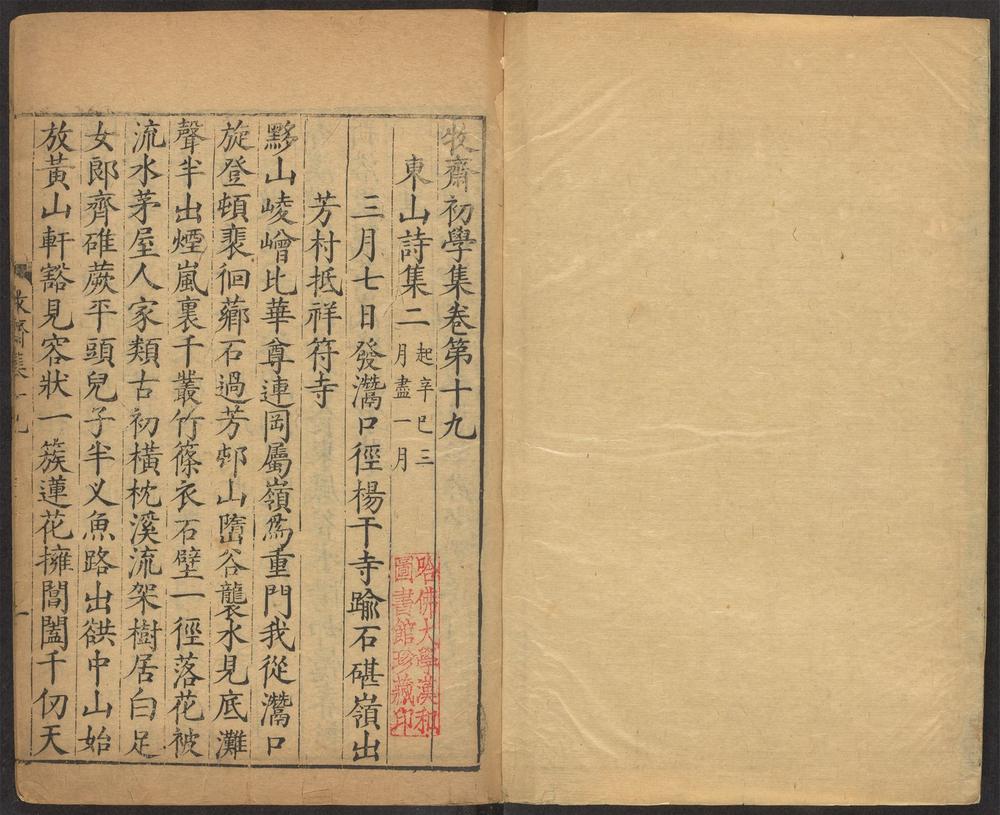 牧齋初學集卷第十九
東山詩集二 起辛巳三
月盡一月
三月七日發灊口徑楊干寺踰石碪嶺出
芳村抵祥符寺
黟山崚嶒比華尊連岡屬嶺爲重門我從灊口
旋登頓裵徊薌石過芳邨山墮谷襲水見底灘
聲半出煙嵐裏千叢竹篠衣石壁一徑落花被
流水茅屋人家類古初橫枕溪流架樹居白足
女郎齊碓蕨平頭兒子半乂魚路出谼中山始
放黃山軒豁見容狀一簇蓮花擁閶闔千仞天
哈佛大學漢和
圖書館珍藏印
牧齋集十九
一